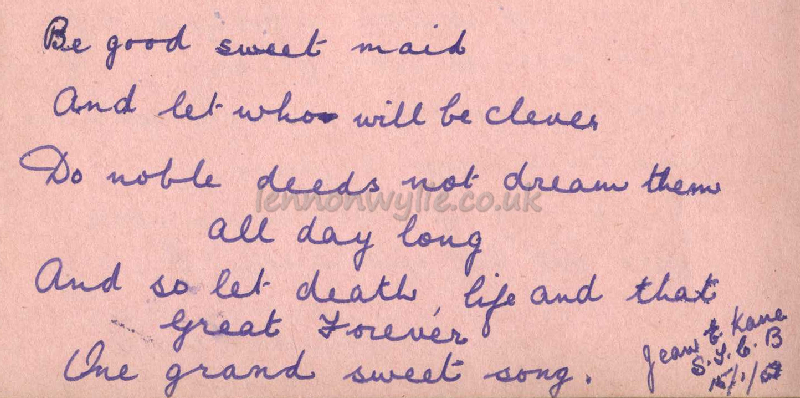 Be good sweet maid
And let who will be clever
Do noble deeds not dream them
lennonwylie.co.uk
all day long
And so let death, life and that
Great Forever
One grand sweet song.
Jean E Kane
15/1/